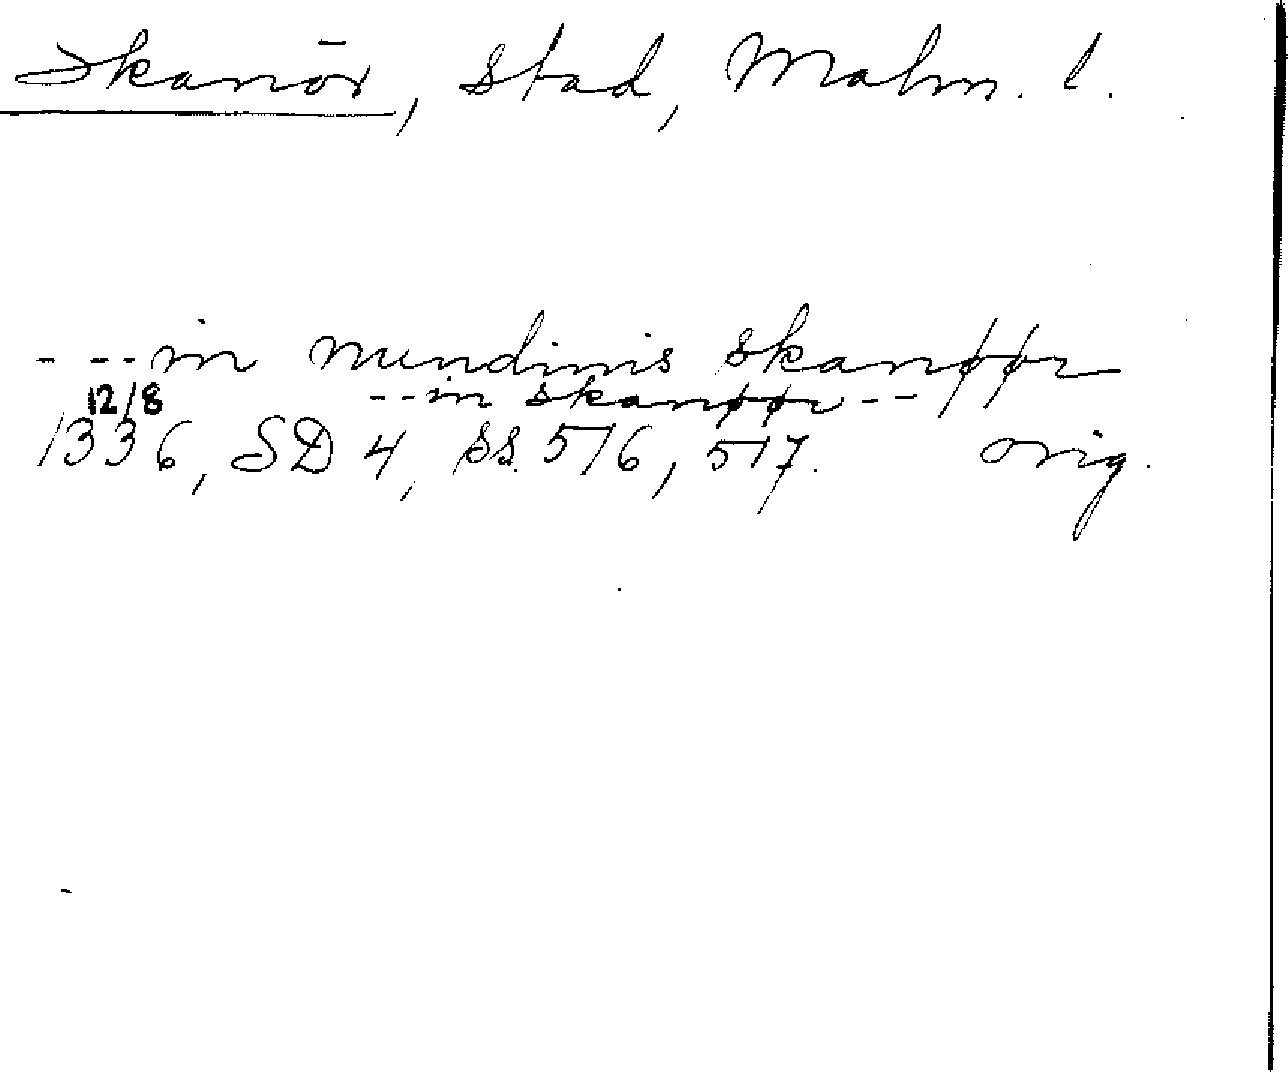 Skanör, stad, Malm. l.
- --in nundinis skanøør
--in skanøør--
12/8
1336, SD 4, ss. 516, 517. orig.